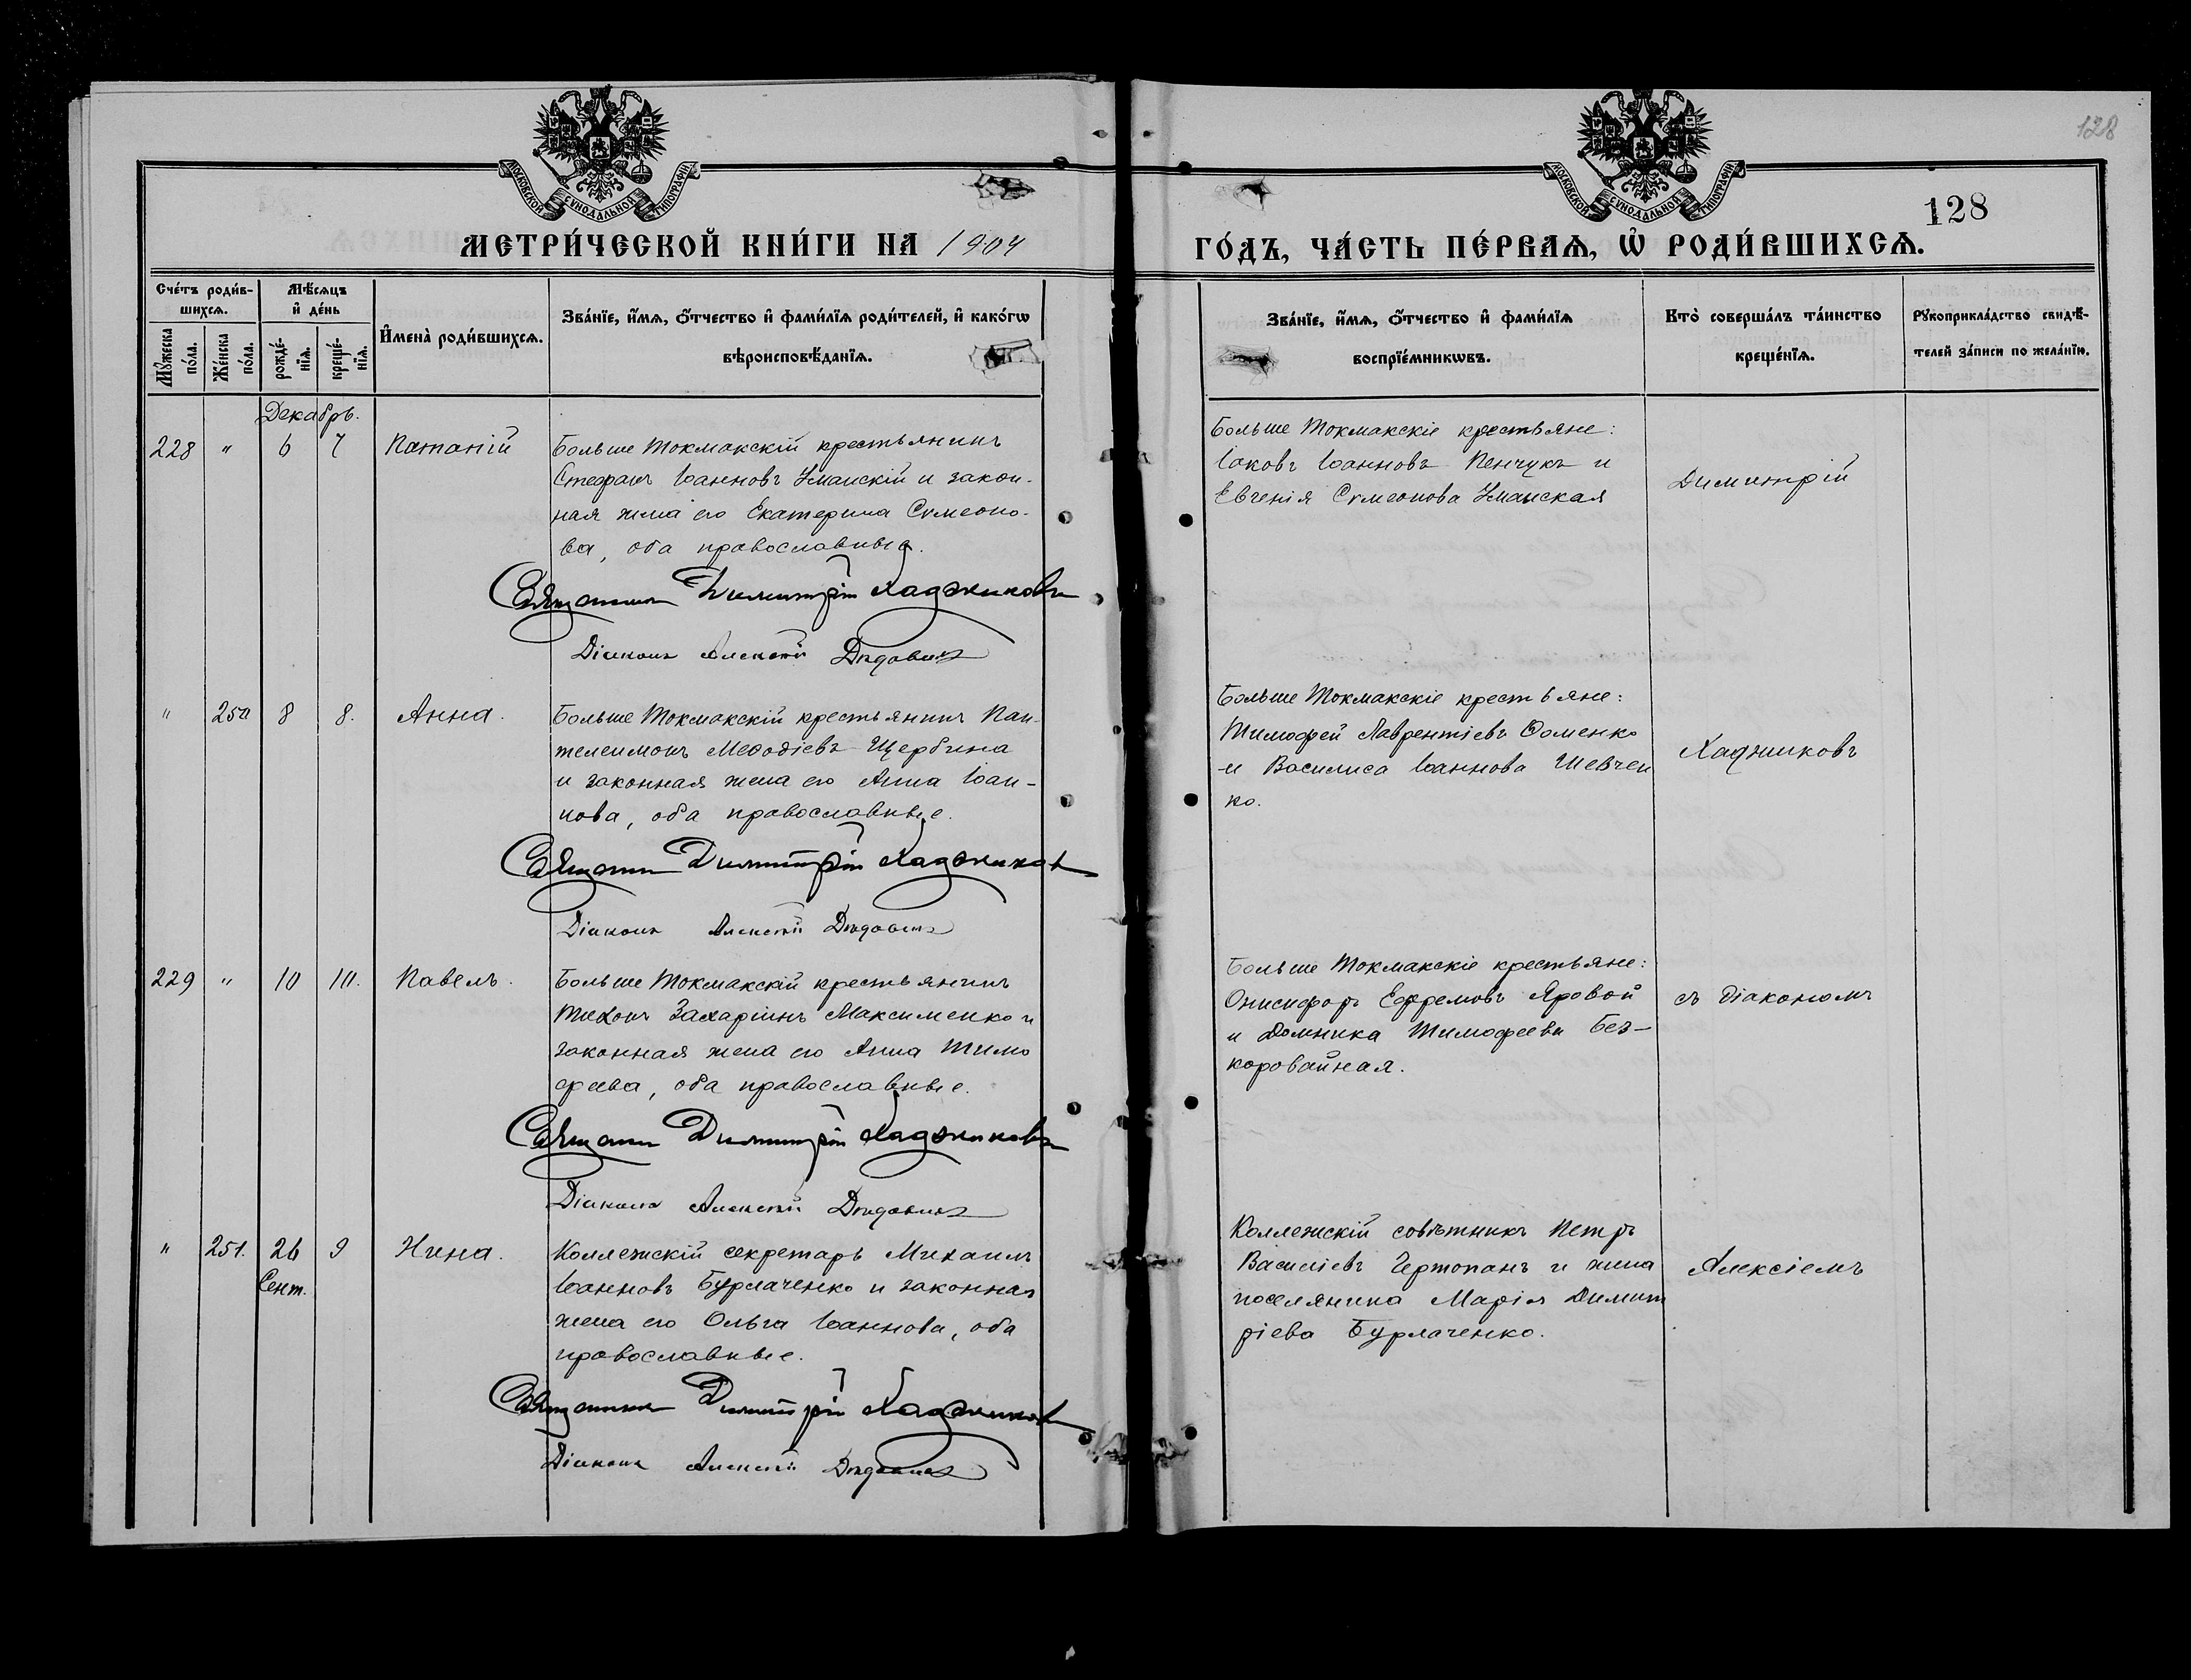 128
МОСКОВСКОЙ СѴНОДАЛЬНОЙ ТИПОГРАФІИ
МОСКОВСКОЙ СѴНОДАЛЬНОЙ ТИПОГРАФІИ
128
МЕТРИ́ЧЕСКОЙ КНИ́ГИ НА 1904
ГО́ДЪ, ЧА́СТЬ ПЕ́РВАѦ, Ѡ҆ РОДИ́ВШИХСѦ.
Сче́тъ роди́в-
шихсѧ.
Мꙋ́жеска по́ла.
Же́нска по́ла.
Мѣ́сѧцъ
и҆ де́нь
рожде́-
нїѧ.
креще́-
нїѧ.
И҆мена̀ роди́вшихсѧ.
Зва́нїе, и҆́мѧ, ѻ҆́тчество и҆ фами́лїѧ роди́телей, и҆ како́гѡ
вѣроисповѣ́данїѧ.
Зва́нїе, и҆́мѧ, ѻ҆́тчество и҆ фами́лїѧ
воспрїе́мникѡвъ.
Кто̀ соверша́лъ та́инство
креще́нїѧ.
Рꙋкоприкла́дство свидѣ́-
телей за́писи по жела́нїю.
Декабрь.
228 " 6 7 Патапій
Больше Токмакскій крестьянинъ
Стефанъ Іоанновъ Уманскій и закон-
ная жена его Екатерина Сумеоно-
ва, оба православные.
Священникъ Димитрій Хаджиковъ
Діаконъ Алексій
Больше Токмакскіе крестьяне:
Іаковъ Іоанновъ Пенчукъ и
Евгенія Сумеонова Уманская
Димитрій
" 250 8 8. Анна.
Больше Токмакскій крестьянинъ Пан-
телеимонъ Меѳодіевъ Щербина
и законная жена его Анна Іоан-
нова, оба православные.
Священ Димитрій Хаджиковъ
Діаконъ Алексій
Больше Токмакскіе крестьяне:
Тимофей Лаврентіевъ Ѳоменко
и Василиса Іоаннова Шевчен
ко.
Хаджиковъ
229 " 10 10. Павелъ.
Больше Токмакскій крестьянинъ
Тихонъ Захаріинъ Максименко и
законная жена его Анна Тимо
феева, оба православные.
Священ Димитрій Хаджиковъ
Діаконъ Алексій
Больше Токмакскіе крестьяне:
Онисифоръ Ефремовъ Яровой
и Домника Тимофеева Без-
коровайная.
съ діакономъ
" 251. 26 9 Нина.
Сент.
Коллежскій секретарь Михаилъ
Іоанновъ Бурлаченко и законная
жена его Ольга Іоаннова, оба
православные.
Священникъ Димитрій Хаджиковъ
Діаконъ Алексій
Коллежскій совѣтникъ Петръ
Василіевъ Чертопанъ и жена
поселянина Марія Димит
ріева Бурлаченко.
Алексіемъ